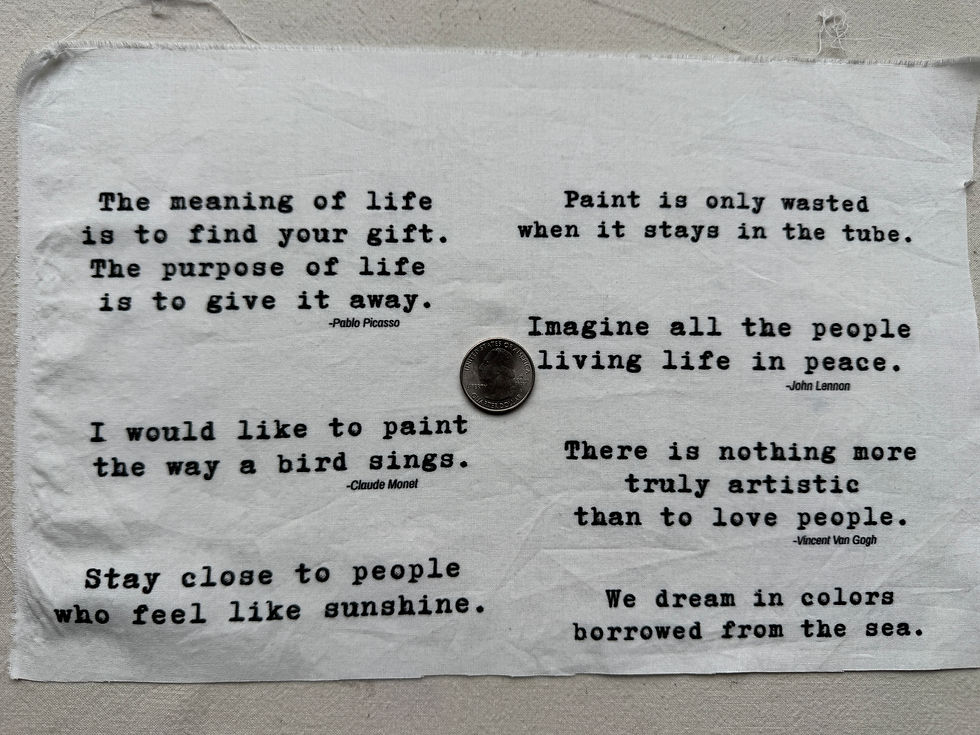 The meaning of life
is to find your gift.
The purpose of life
is to give it away.
-Pablo Picasso
I would like to paint
the way a bird sings.
-Claude Monet
Stay close to people
who feel like sunshine.
Paint is only wasted
when it stays in the tube.
Imagine all the people
living life in peace.
-John Lennon
There is nothing more
truly artistic
than to love people.
-Vincent Van Gogh
We dream in colors
borrowed from the sea.
UNITED STATES OF AMERICA
LIBERTY
QUARTER DOLLAR